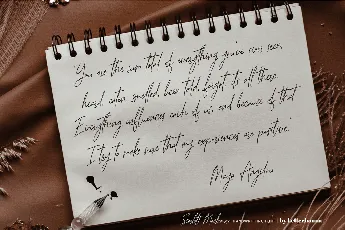 You are the sum total of everything you've ever seen,
heard, eaten, smelled, been told, forgot - it's all there.
Everything influences each of us, and because of that
I try to make sure that my experiences are positive."
Maya Angelou
by letterhanna